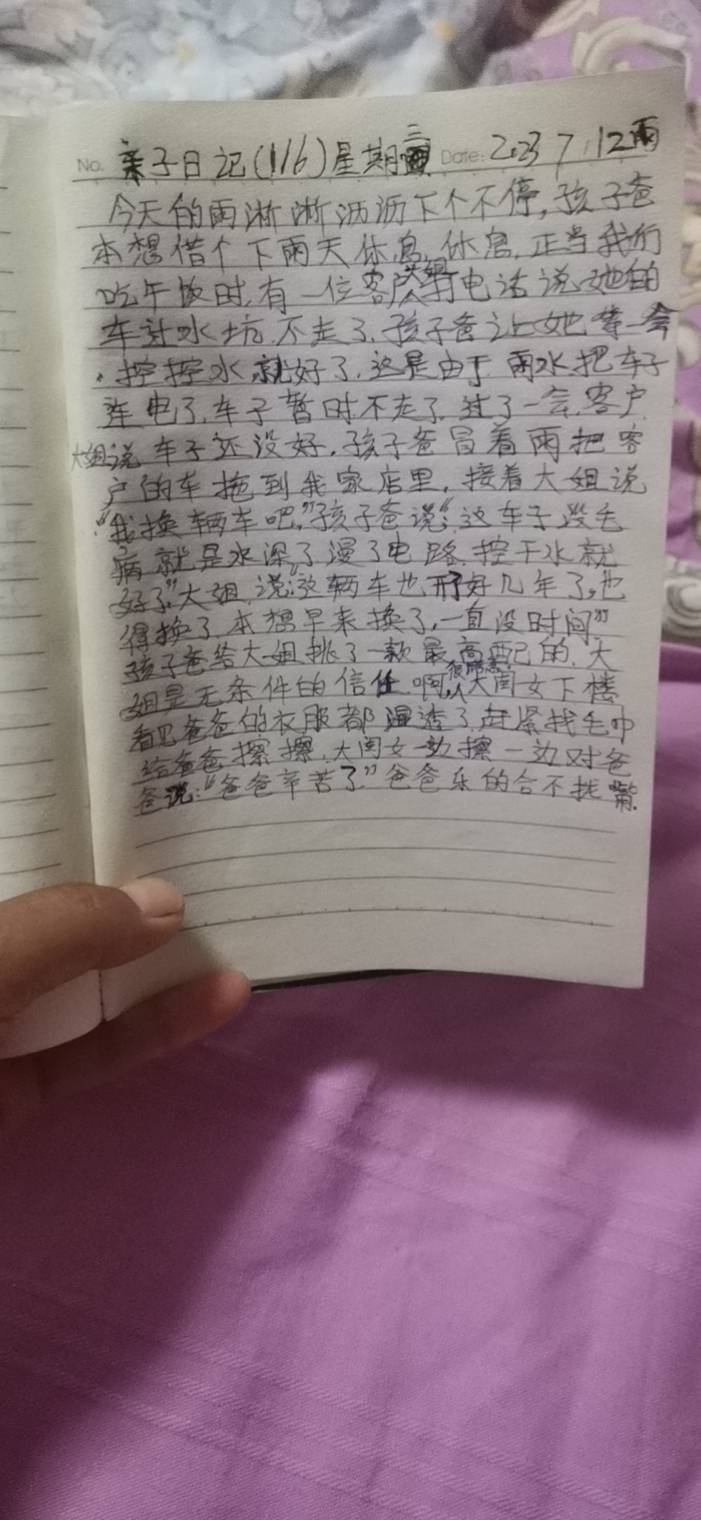 No. 亲子日记(116)星期三 Date: 2023 7.12雨
今天的雨淅淅沥沥下个不停,孩子爸
本想借个下雨天休息,休息,正当我们
吃午饭时,有一位客户大姐打电话说她的
车进水坑,不走了,孩子爸让她等一会
,控控水就好了,这是由于雨水把车子
连电了,车子暂时不走了,过了一会,客户
大姐说车子还没好,孩子爸冒着雨把客
户的车拖到我家店里,接着大姐说
“我换辆车吧,”孩子爸说:“这车子没毛
病就是水深了漫了电路,控干水就
好了”大姐说:“这辆车也开好几年了,也
得换了,本想早来换了,一直没时间”
孩子爸给大姐挑了一款最高配的,大
姐是无条件的信任啊,很暖心,大闺女下楼
看见爸爸的衣服都湿透了,赶紧找毛巾
给爸爸擦擦,大闺女一边擦一边对爸
爸说:“爸爸辛苦了”爸爸乐的合不拢嘴.